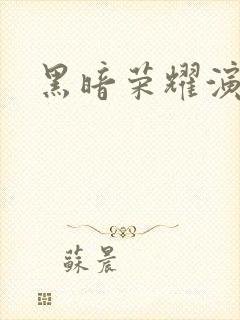 黑暗荣耀演
蘇晨